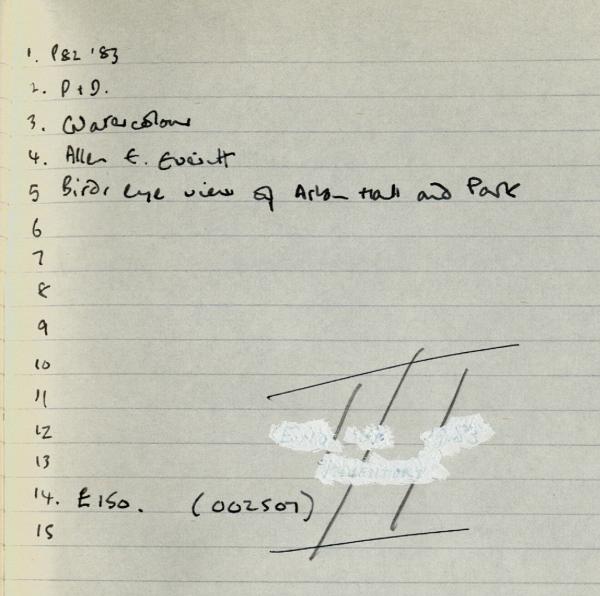 1. P82 '83
2. P + D.
3. Watercolour
4. Allen E. Everitt
5 Birds eye view of Arbon Hall and Park
6
7
8
9
10
11
12 END 1983
13 INVENTORY
14. £150. (002507)
15